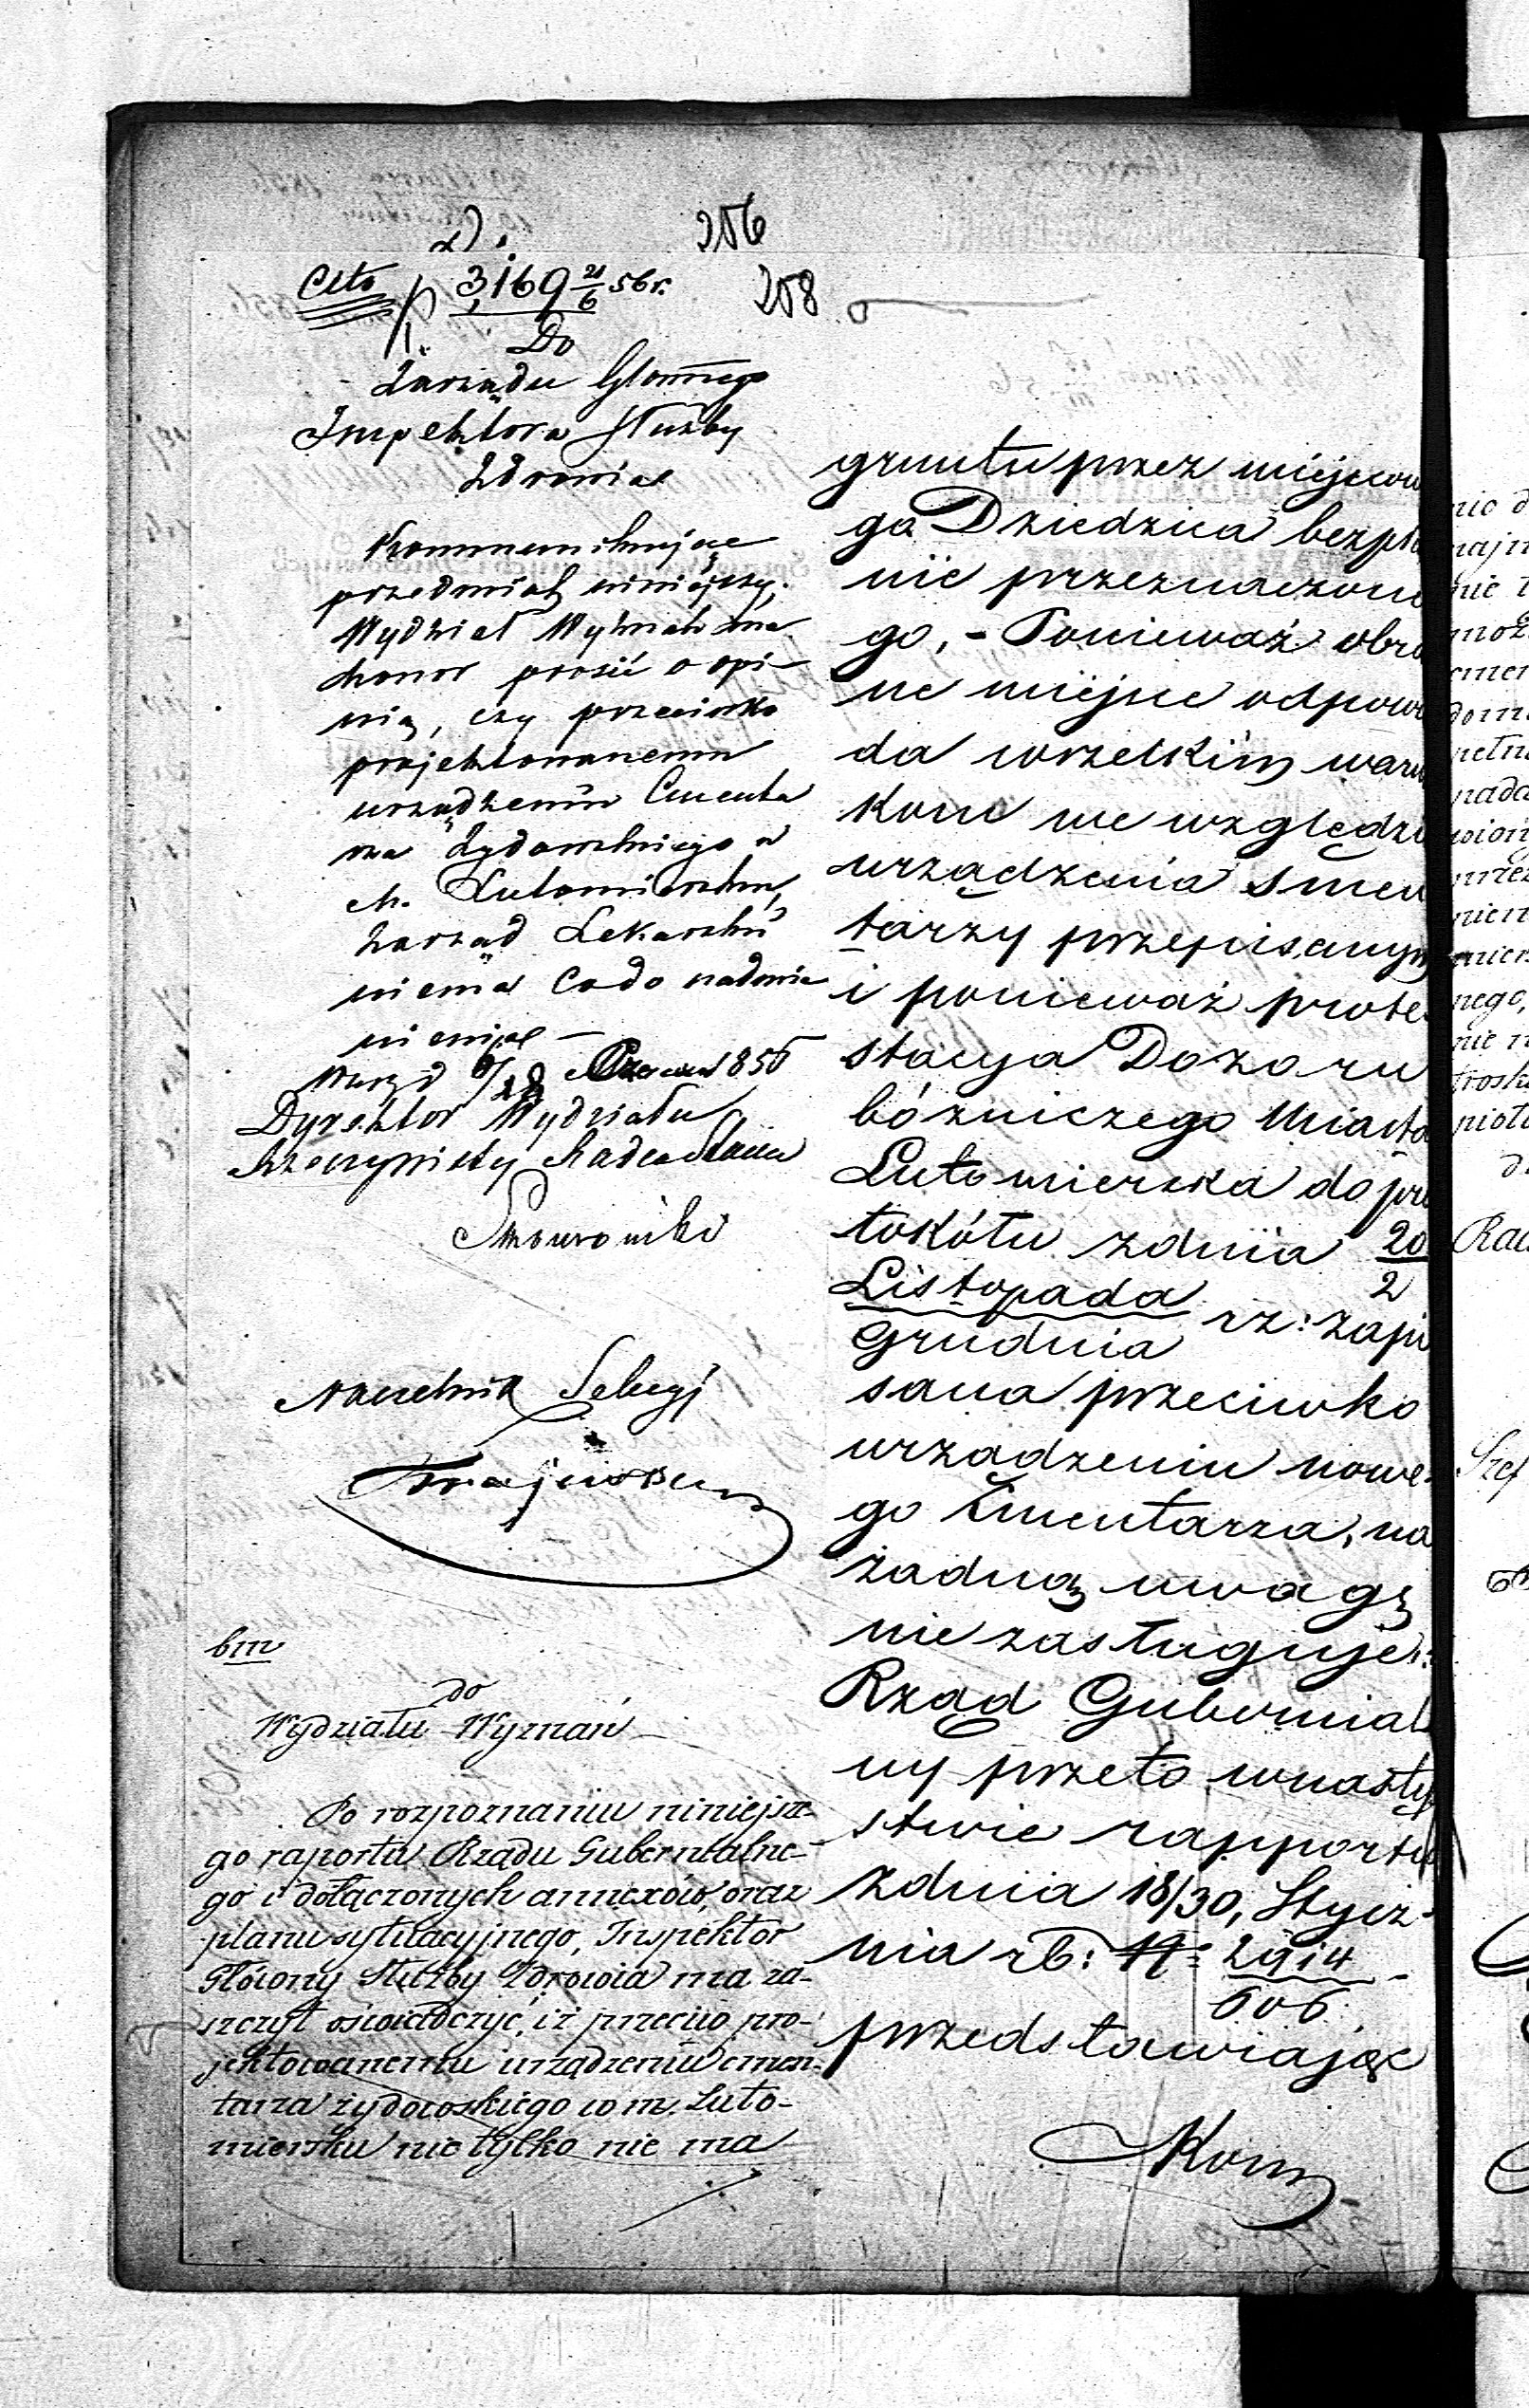 256
Cito 3,169 21/6 56 r.
258
Do
Zarządu Głównego
Inspektora Służby
Zdrowia
Kommunikując
przedmiot niniejszy,
Wydział Wyznań ma
honor prosić o opi-
nią, czy przeciwko
projektowanemu
urządzeniu Cmenta
rza Żydowskiego w
m. Lutomiersku,
Zarząd Lekarski
niema co do nadmie
nienia —
Dyrektor Wydziału
Rzeczywisty Radca Stanu
Naczelnik Sekcyi
bm
do
Wydziału Wyznań
Po rozpoznaniu niniejsze-
go raportu Rządu Gubernialne-
go i dołączonych annexów, oraz
planu sytuacyjnego, Inspektor
Główny Służby Zdrowia ma za-
szczyt oświadczyć, iż przeciw pro-
jektowanemu urządzeniu cmen-
tarza żydowskiego w m. Luto-
miersku nie tylko nie ma
gruntu przez miejscow
go Dziedzica bezpła
nie przeznaczone
go, - Ponieważ obra
ne miejsce odpowi
da wszelkim warun
kom we względzie
urządzenia smen
tarzy przepisanym
i ponieważ prote
stacya Dozoru
bóżniczego Miasta
Lutomierska do pro
tokółu z dnia 20/2
Listopada
Grudnia rz: zapi
sana przeciwko
urządzeniu nowe-
go Zmentarza, na
żadną uwagę
nie zasługuje:
Rząd Gubernial
ny przeto w nastę
stwie rapportu
z dnia 18/30, Stycz-
nia rb: N: 2914
606
przedstawiając
Kom